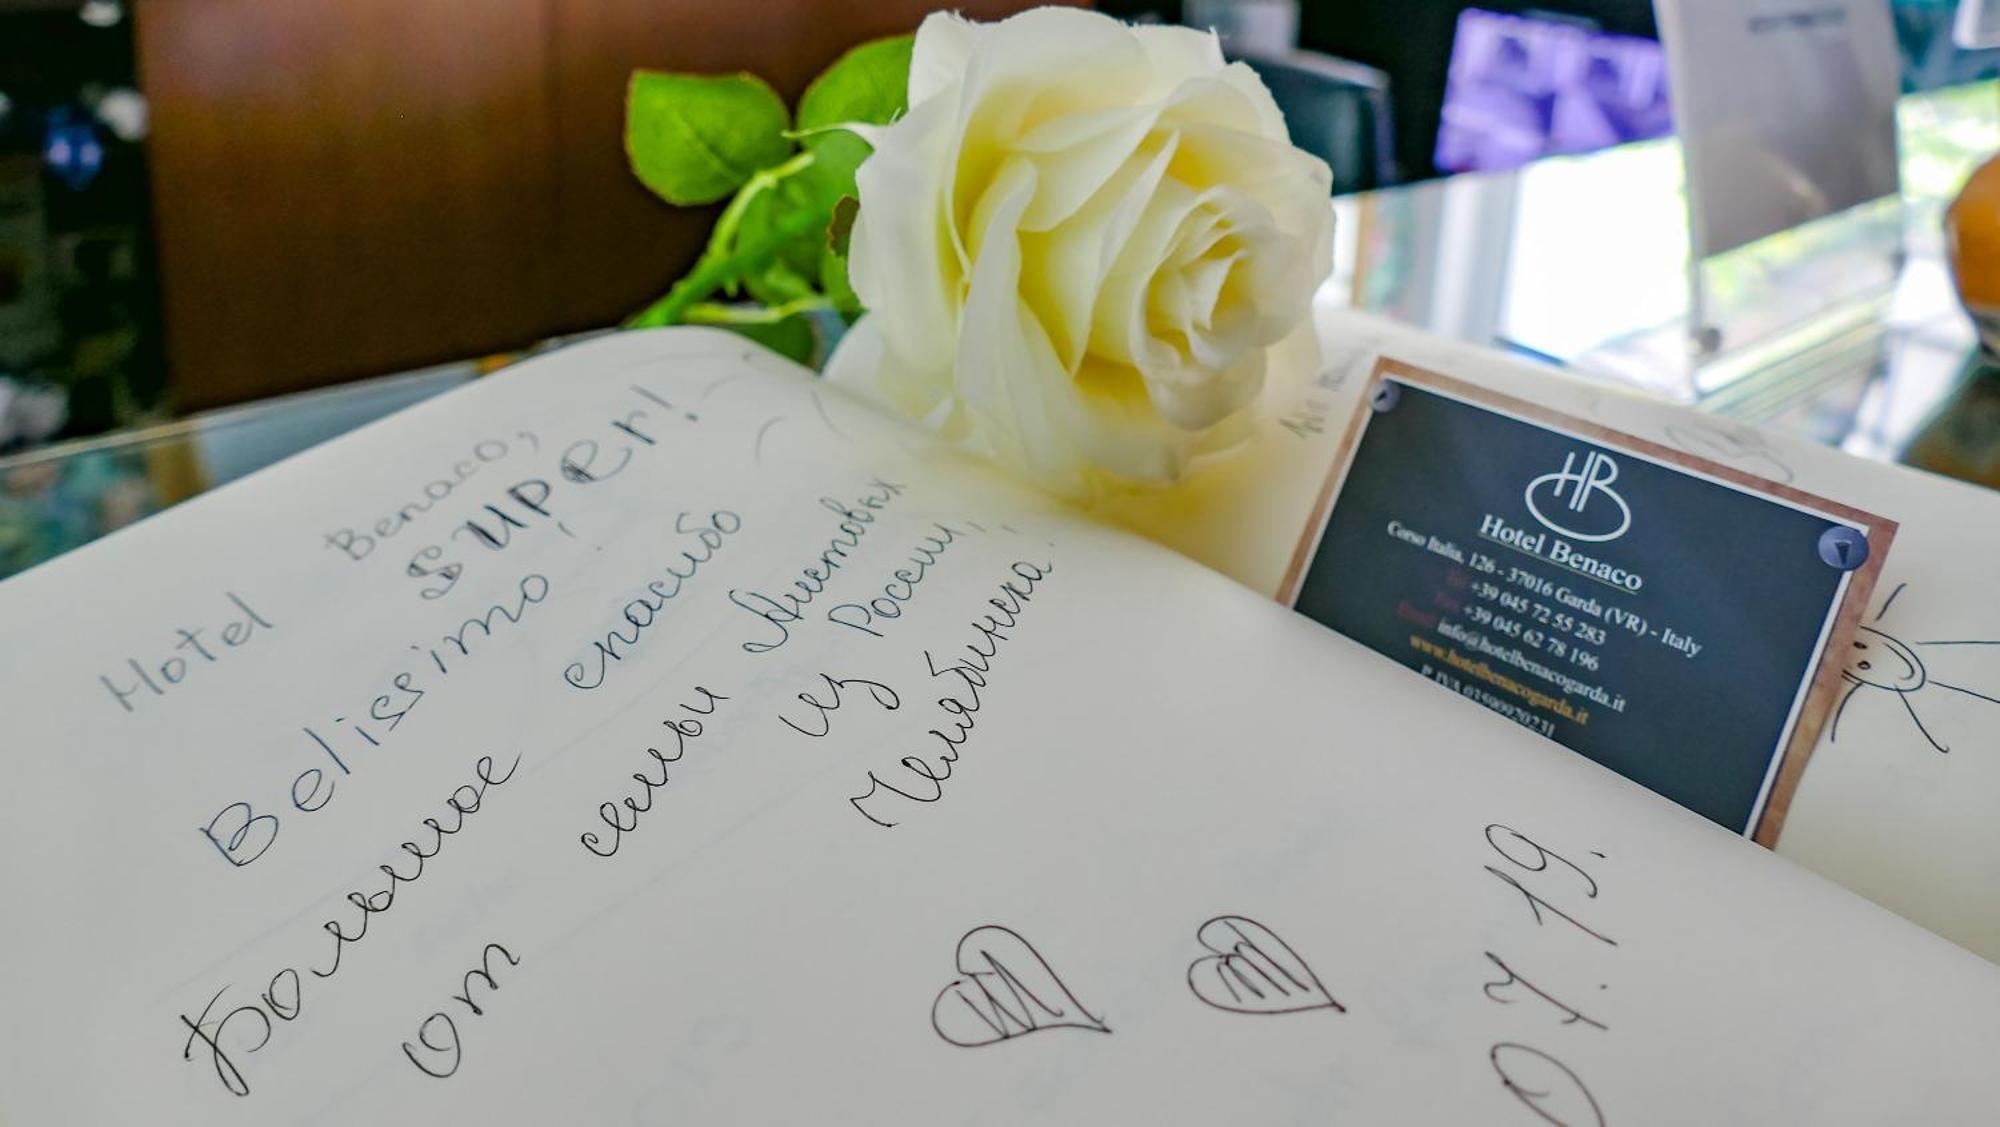 Hotel Benaco,
super!
Belissimo
Большое спасибо
от семьи Аистовых
из России,
Челябинска.
07.19.
HB
Hotel Benaco
Corso Italia, 126 - 37016 Garda (VR) - Italy
+39 045 72 55 283
+39 045 62 78 196
info@hotelbenacogarda.it
www.hotelbenacogarda.it